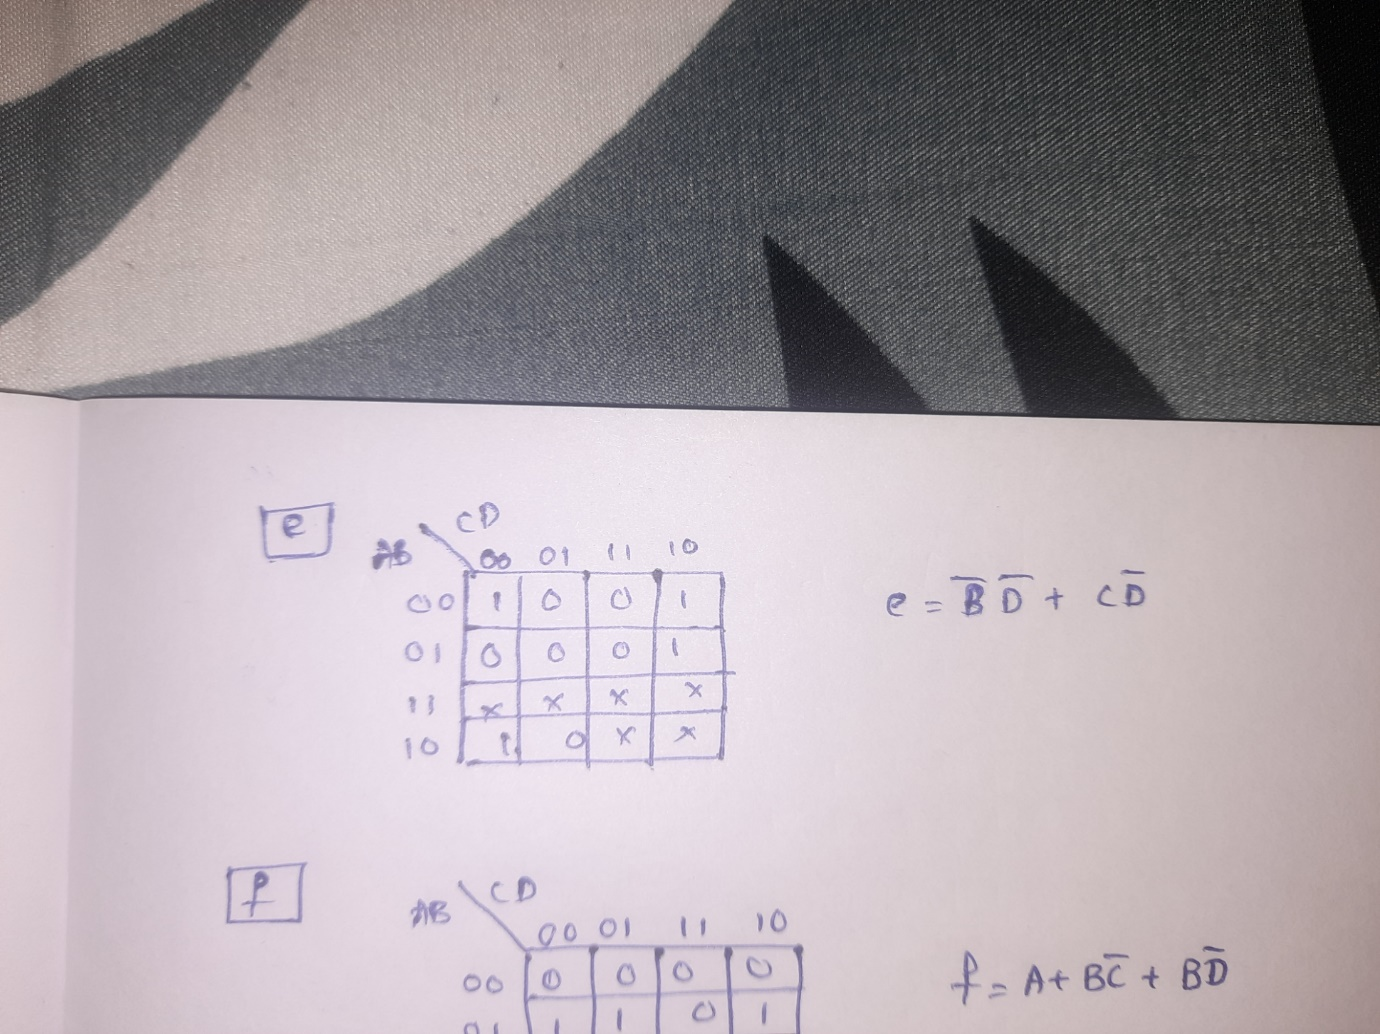 e
CD
AB
00 01 11 10
00 1 0 0 1
01 0 0 0 1
11 x x x x
10 1 0 x x
e = B̅ D̅ + C D̅
f
CD
AB
00 01 11 10
00 0 0 0 0
01 1 1 0 1
f = A + B C̅ + B D̅